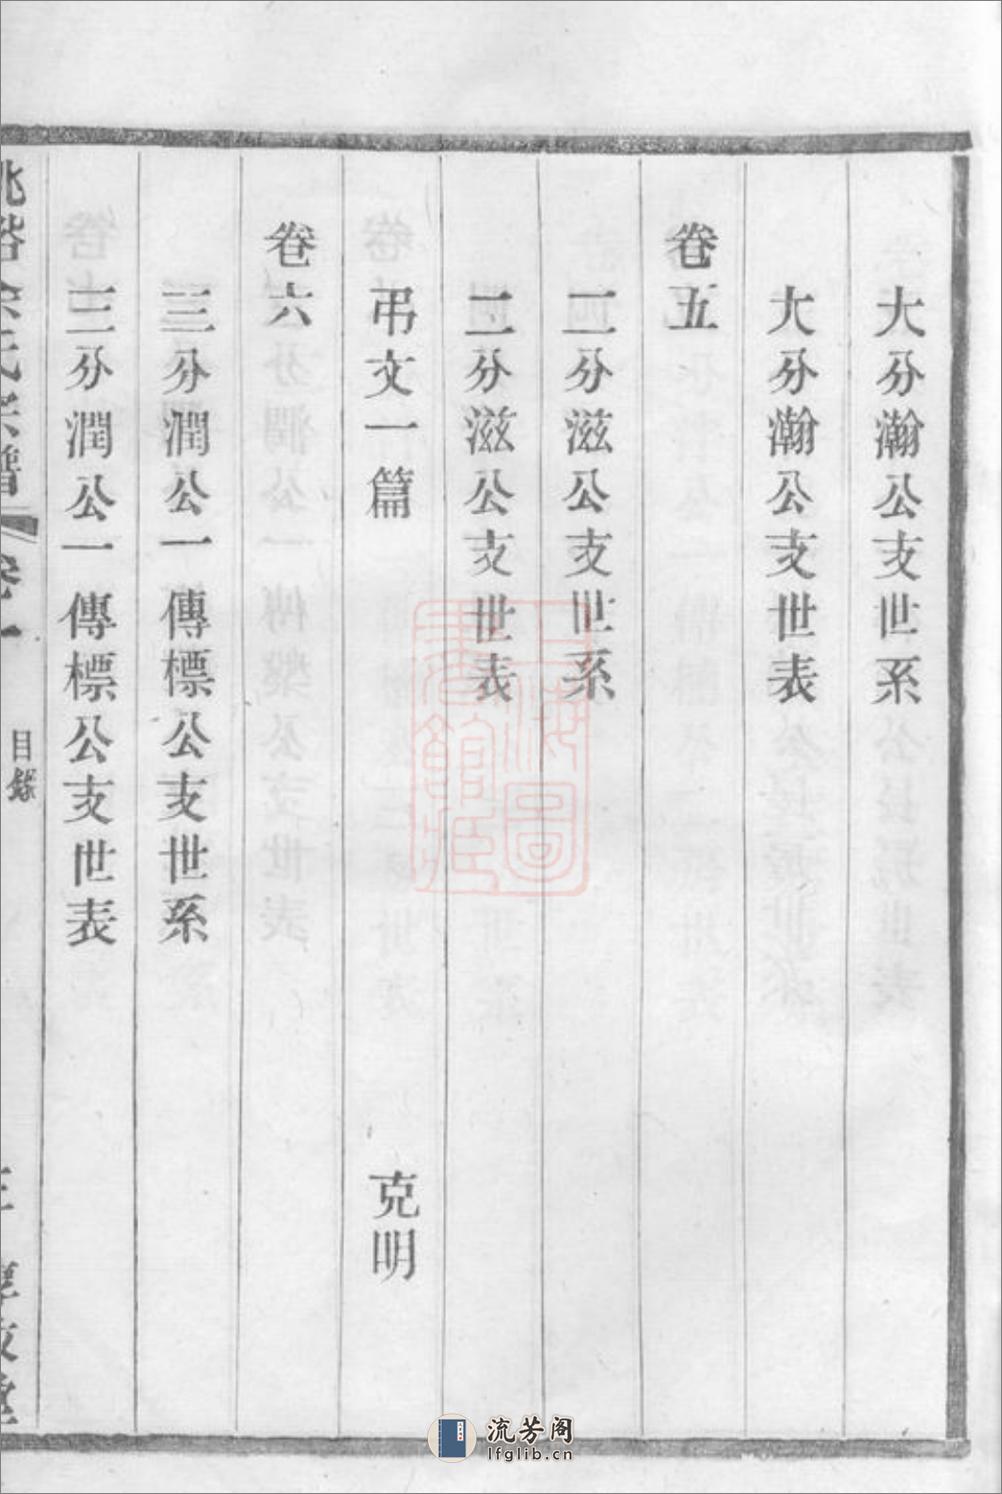 大分瀚公支世系
大分瀚公支世表
卷五
二分滋公支世系
二分滋公支世表
弔文一篇 克明
卷六
三分潤公一傳標公支世系
三分潤公一傳標公支世表
氏宗譜 卷一 目錄
上海圖書館藏
流芳阁
lfglib.cn